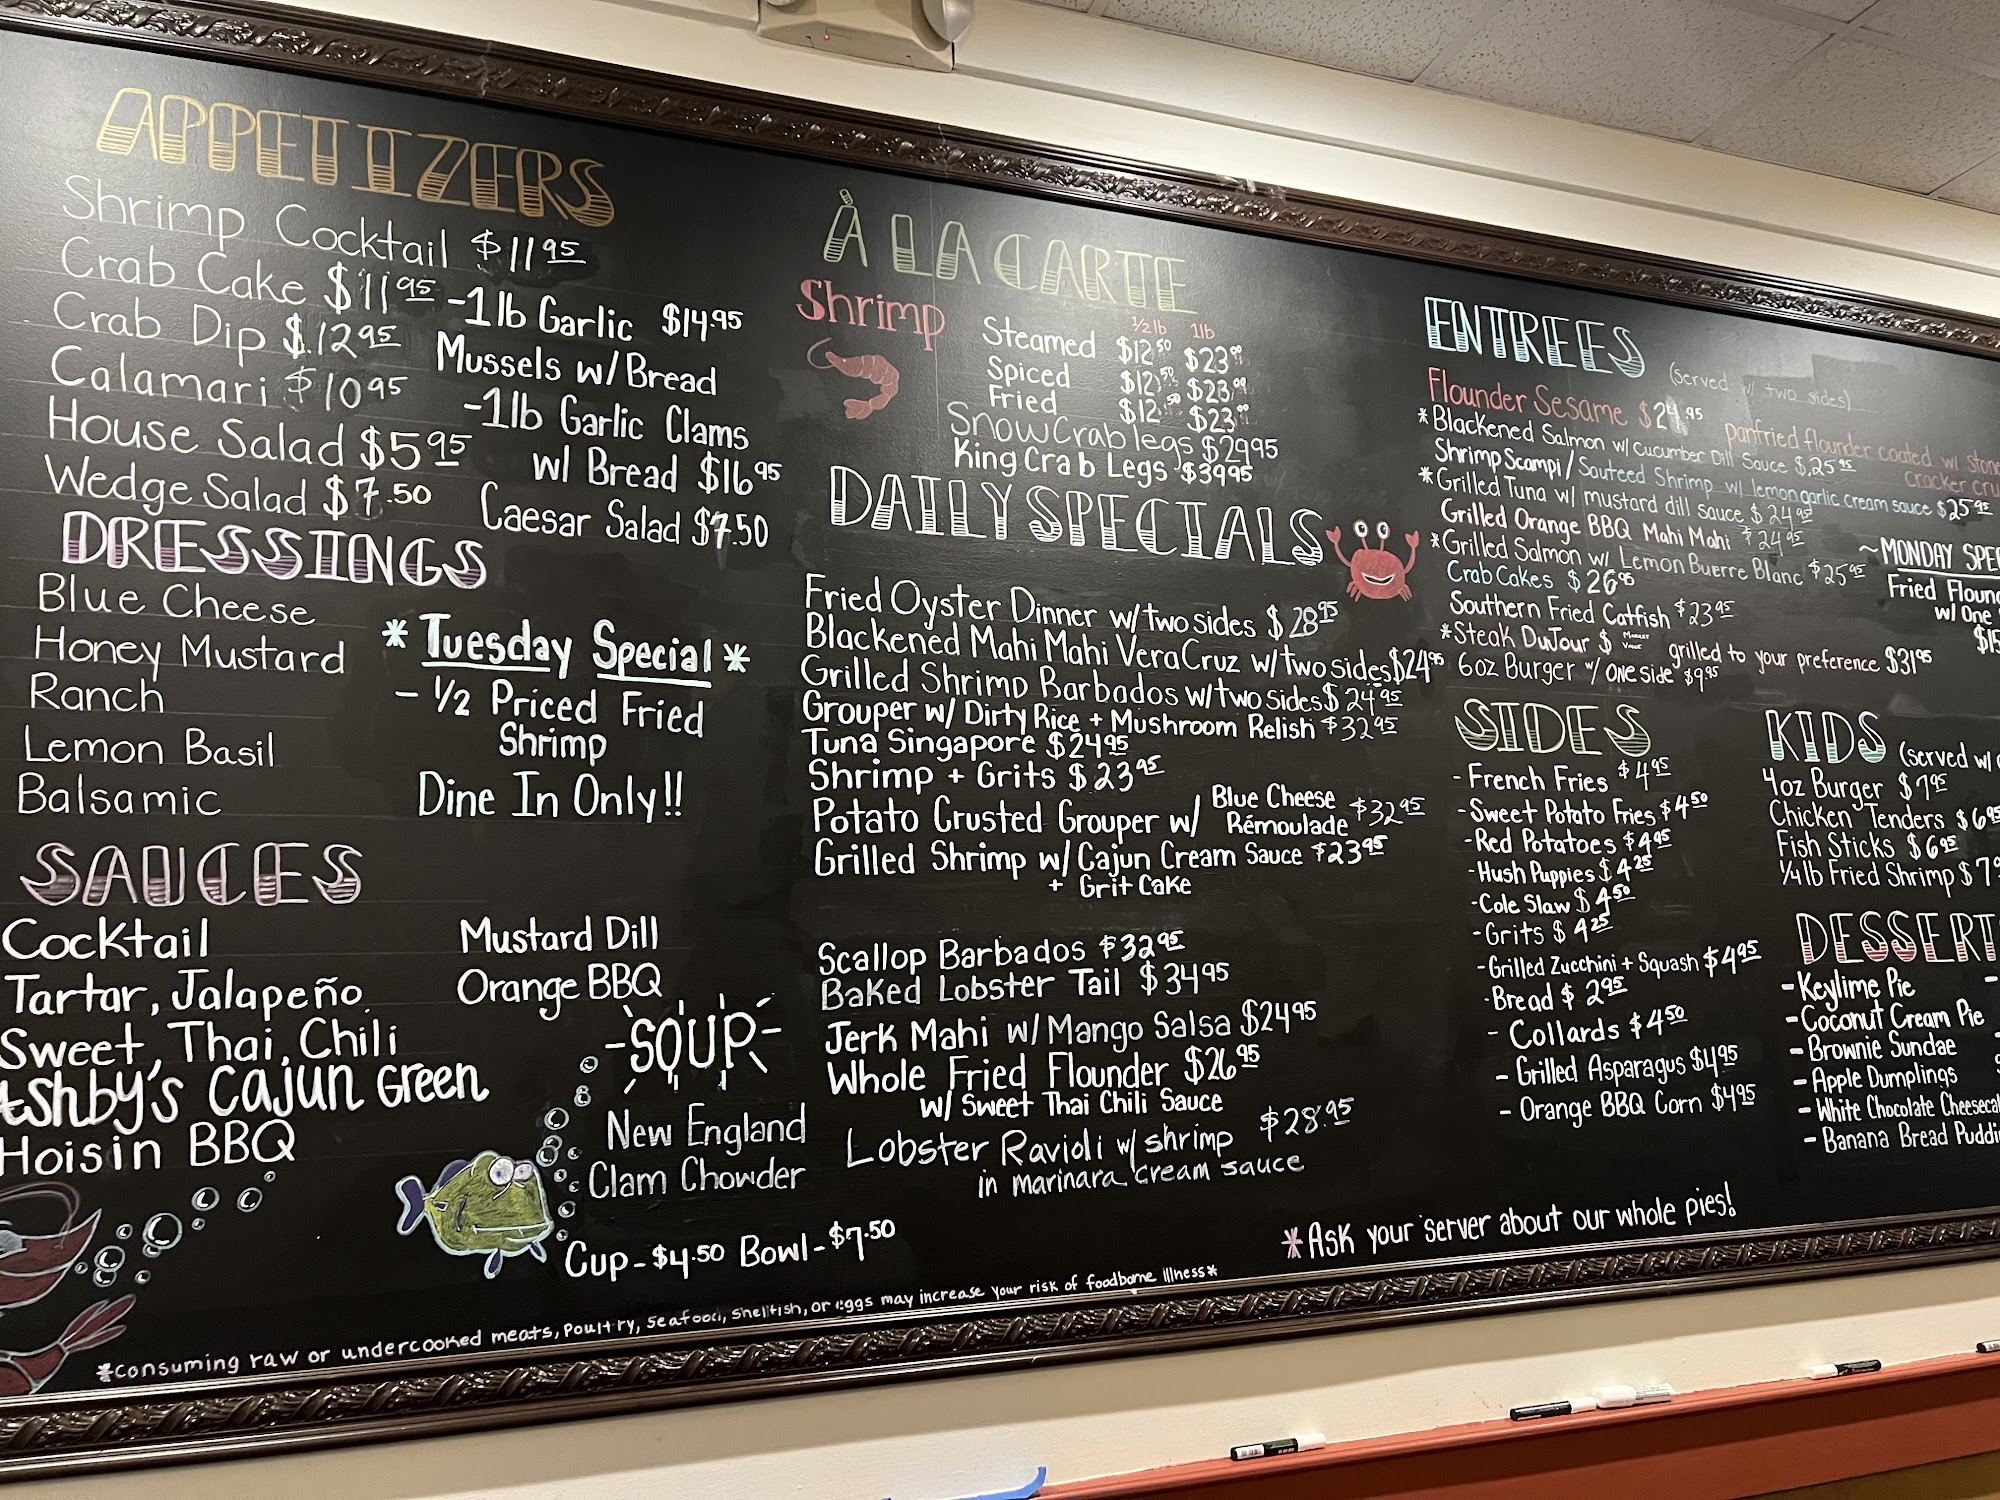 APPETIZERS
Shrimp Cocktail $11.95
Crab Cake $11.95
Crab Dip $12.95
Calamari $10.95
House Salad $5.95
Wedge Salad $7.50
-1 lb Garlic $14.95
Mussels w/ Bread
-1lb Garlic Clams
w/ Bread $16.95
Caesar Salad $7.50
DRESSINGS
Blue Cheese
Honey Mustard
Ranch
Lemon Basil
Balsamic
* Tuesday Special *
- 1/2 Priced Fried
Shrimp
Dine In Only!!
SAUCES
Cocktail
Tartar, Jalapeño
Sweet, Thai, Chili
Ashby's Cajun Green
Hoisin BBQ
Mustard Dill
Orange BBQ
-SOUP-
New England
Clam Chowder
Cup - $4.50 Bowl - $7.50
À LA CARTE
Shrimp
1/2 lb 1lb
Steamed $12.50 $23.00
Spiced $12.50 $23.00
Fried $12.50 $23.00
Snow Crab legs $29.95
King Crab Legs $39.95
DAILY SPECIALS
Fried Oyster Dinner w/ two sides $28.95
Blackened Mahi Mahi VeraCruz w/ two sides $24.95
Grilled Shrimp Barbados w/ two sides $24.95
Grouper w/ Dirty Rice + Mushroom Relish $32.95
Tuna Singapore $24.95
Shrimp + Grits $23.95
Potato Crusted Grouper w/ Blue Cheese Rémoulade $32.95
Grilled Shrimp w/ Cajun Cream Sauce $23.95
+ Grit Cake
Scallop Barbados $32.95
Baked Lobster Tail $34.95
Jerk Mahi w/ Mango Salsa $24.95
Whole Fried Flounder $26.95
w/ Sweet Thai Chili Sauce
Lobster Ravioli w/ shrimp $28.95
in marinara cream sauce
ENTREES
(served w/ two sides)
Flounder Sesame $24.95 panfried flounder coated w/ stone
cracker cru
*Blackened Salmon w/ Cucumber Dill Sauce $25.95
Shrimp Scampi / Sauteed Shrimp w/ lemon garlic cream sauce $25.95
*Grilled Tuna w/ mustard dill sauce $24.95
Grilled Orange BBQ Mahi Mahi $24.95
*Grilled Salmon w/ Lemon Buerre Blanc $25.95
Crab Cakes $26.95
Southern Fried Catfish $23.95
*Steak DuJour $ Market Value grilled to your preference $31.95
6oz Burger w/ One side $9.95
~MONDAY SPE
Fried Floun
w/ One
$15
SIDES
- French Fries $4.95
- Sweet Potato Fries $4.50
- Red Potatoes $4.95
- Hush Puppies $4.25
- Cole Slaw $4.50
- Grits $4.25
- Grilled Zucchini + Squash $4.95
- Bread $2.95
- Collards $4.50
- Grilled Asparagus $4.95
- Orange BBQ Corn $4.95
KIDS (served w/
4oz Burger $7.95
Chicken Tenders $6.95
Fish Sticks $6.95
1/4 lb Fried Shrimp $7.9
DESSERT
- Keylime Pie
- Coconut Cream Pie
- Brownie Sundae
- Apple Dumplings
- White Chocolate Cheeseca
- Banana Bread Puddi
*Ask your server about our whole pies!
*consuming raw or undercooked meats, poultry, seafood, shellfish, or eggs may increase your risk of foodborne illness*